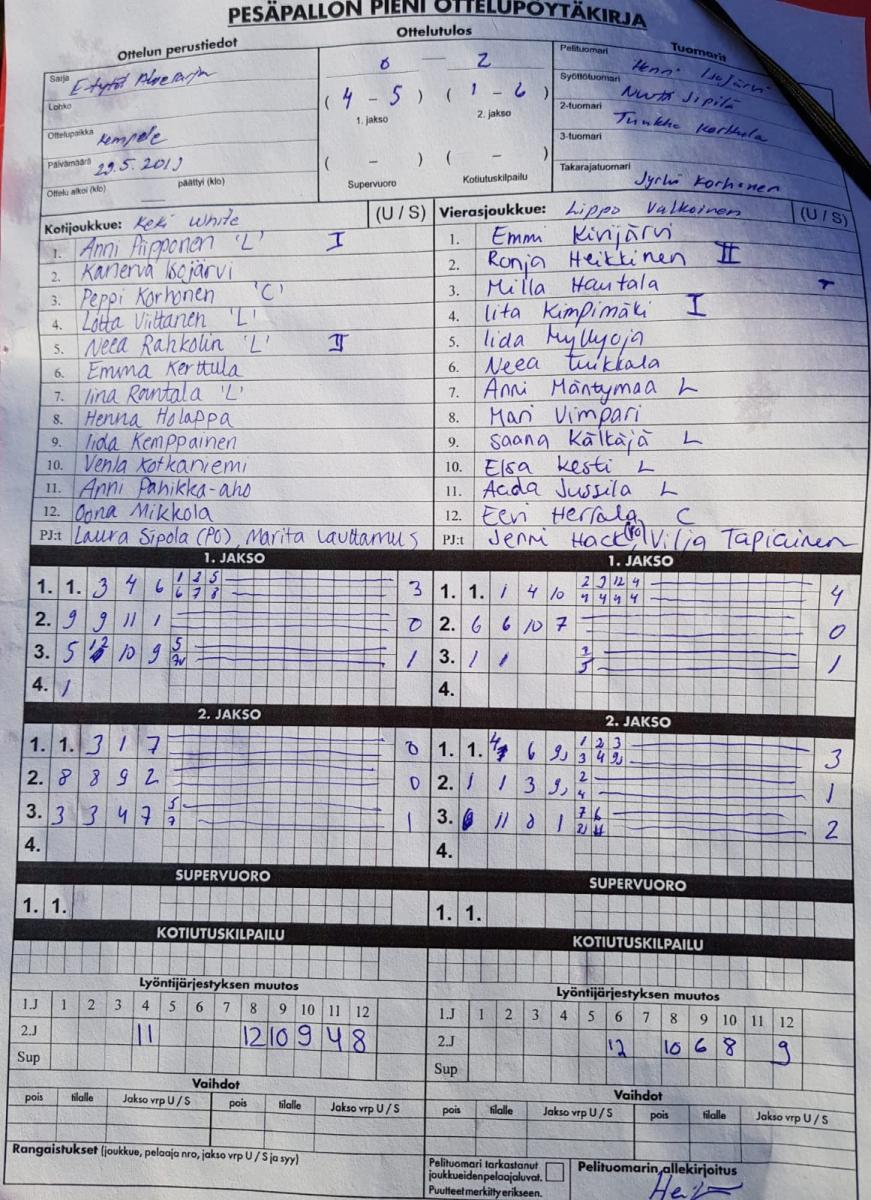 PESÄPALLON PIENI OTTELUPÖYTÄKIRJA
Ottelun perustiedot
Sarja E-tytöt Aluesarja
Lohko
Ottelupaikka Kempele
Päivämäärä 29.5.2019
Ottelu alkoi (klo) päättyi (klo)
Ottelutulos
0 — 2
( 4 - 5 ) ( 1 - 6 )
1. jakso 2. jakso
( - ) ( - )
Supervuoro Kotiutuskilpailu
Tuomarit
Pelituomari Henni Isojärvi
Syöttötuomari Sipilä
2-tuomari Kerttula
3-tuomari
Takarajatuomari Jyrki Korhonen
Kotijoukkue: Keki White (U / S)
1. Anni Piipponen 'L' I
2. Kanerva Isojärvi
3. Peppi Korhonen 'C'
4. Lotta Viittanen 'L'
5. Neea Rahkolin 'L' II
6. Emma Kerttula
7. Iina Rantala 'L'
8. Henna Holappa
9. Iida Kemppainen
10. Venla Kotkaniemi
11. Anni Pahikka-aho
12. Oona Mikkola
PJ:t Laura Sipola (PO), Marita Lauttamus
Vierasjoukkue: Lippo Valkoinen (U / S)
1. Emmi Kivijärvi
2. Ronja Heikkinen II
3. Milla Hautala
4. Iita Kimpimäki I
5. Iida Myllyoja
6. Neea Tuikkala
7. Anni Mäntymaa L
8. Mari Vimpari
9. Saana Kältäjä L
10. Elsa Kesti L
11. Aada Jussila L
12. Eevi Herrala C
PJ:t Jenni Hack (PO), Vilja Tapiainen
1. JAKSO
1. 1. 3 4 6 1 2 5 3
6 7 8
2. 9 9 11 1 0
3. 5 12 10 9 5 1
4. 1
2. JAKSO
1. 1. 3 1 7 0
2. 8 8 9 2 0
3. 3 3 4 7 5 1
7
4.
SUPERVUORO
1. 1.
KOTIUTUSKILPAILU
Lyöntijärjestyksen muutos
1.J 1 2 3 4 5 6 7 8 9 10 11 12
2.J 11 12 10 9 4 8
Sup
Vaihdot
pois tilalle Jakso vrp U / S pois tilalle Jakso vrp U / S
Rangaistukset (joukkue, pelaaja nro, jakso vrp U / S ja syy)
1. JAKSO
1. 1. 1 4 10 2 3 12 4 4
2. 6 6 10 7 0
3. 1 1 1
4.
2. JAKSO
1. 1. 4 6 9 1 2 3 3
3 4 9
2. 1 1 3 9 2 1
4
3. 11 8 1 7 6 2
4.
SUPERVUORO
1. 1.
KOTIUTUSKILPAILU
Lyöntijärjestyksen muutos
1.J 1 2 3 4 5 6 7 8 9 10 11 12
2.J 12 10 6 8 9
Sup
Vaihdot
pois tilalle Jakso vrp U / S pois tilalle Jakso vrp U / S
Pelituomari tarkastanut joukkueidenpelaajaluvat.
Puutteet merkitty erikseen.
Pelituomarin allekirjoitus